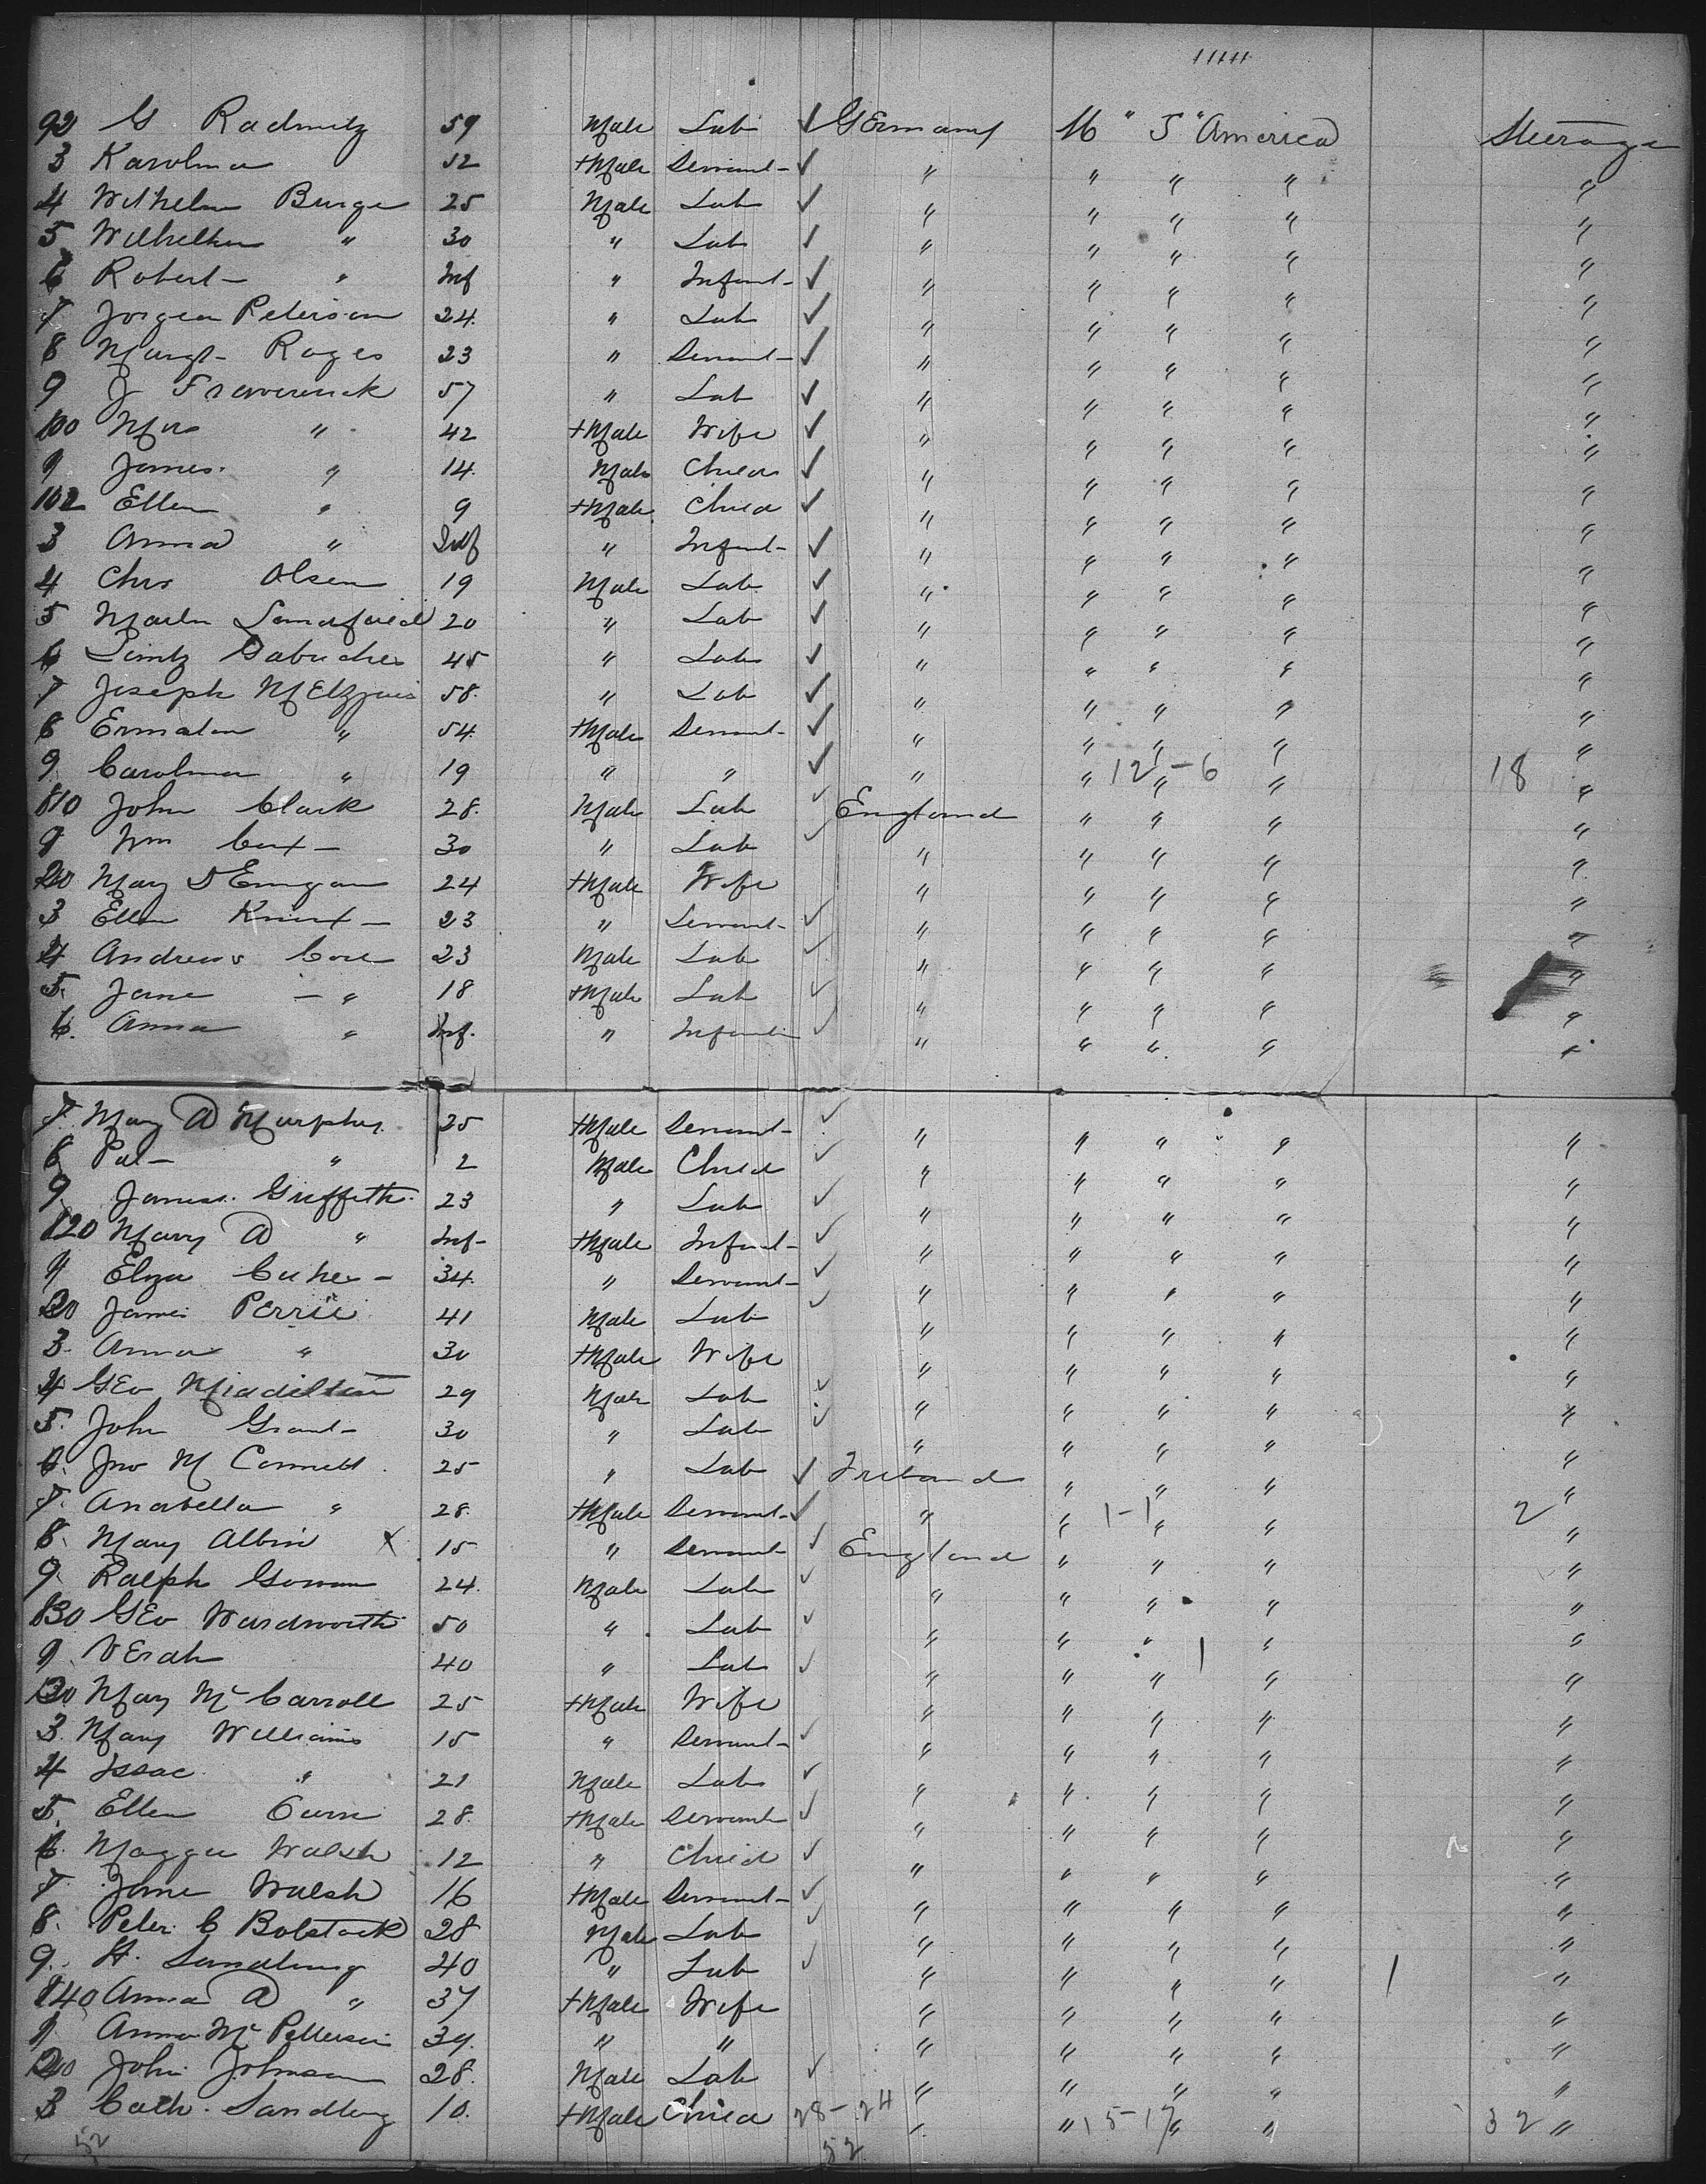 92 G Radmitz 59 Male Lab ✓ Germany U " S " America Steerage
3 Karolina 52 +Male Servant ✓ " " " " "
4 Wilhelm Burge 25 Male Lab ✓ " " " " "
5 " 30 " Lab ✓ " " " " "
6 Robert " Inf " Infant ✓ " " " " "
7 Jorgen Peterson 24 " Lab ✓ " " " " "
8 Margt Roges 23 " Servant ✓ " " " " "
9 J 57 " Lab ✓ " " " " "
100 Mrs " 42 +Male Wife ✓ " " " " "
1 James " 14 Male Child ✓ " " " " "
102 Ellen " 9 +Male Child ✓ " " " " "
3 Anna " Inf " Infant ✓ " " " " "
4 Chrs Olsen 19 Male Lab ✓ " " " " "
5 20 " Lab ✓ " " " " "
6 45 " Lab ✓ " " " " "
7 Joseph 58 " Lab ✓ " " " " "
8 " 54 +Male Servant ✓ " " " " "
9 Carolina " 19 " " ✓ " " 12 " - 6 " 18 "
110 John Clark 28 Male Lab ✓ England " " " "
1 Wm 30 " Lab ✓ " " " " "
2 Mary 24 +Male Wife " " " " "
3 Ellen 23 " Servant ✓ " " " " "
4 Andrews 23 Male Lab ✓ " " " " "
5 Jane " 18 +Male Lab ✓ " " " " "
6 Anna " Inf " Infant ✓ " " " " "
7 Mary A Murphy 25 +Male Servant ✓ " " " " "
8 Pat " 2 Male Child ✓ " " " " "
9 James Griffeth 23 " Lab ✓ " " " " "
120 Mary A " Inf +Male Infant ✓ " " " " "
1 Eliza 34 " Servant ✓ " " " " "
2 James Perrie 41 Male Lab ✓ " " " " "
3 Anna " 30 +Male Wife " " " " "
4 Geo Middleton 29 Male Lab ✓ " " " " "
5 John Grant 30 " Lab ✓ " " " " "
6 Jno M Connell 25 " Lab ✓ Ireland " " " "
7 Anabella " 28 +Male Servant ✓ " " 1-1 " " 2 "
8 Mary Albin X 15 " Servant ✓ England " " " "
9 Ralph 24 Male Lab ✓ " " " " "
130 Geo Wardworth 50 " Lab ✓ " " " " "
1 40 " Lab ✓ " " " 1 " "
2 Mary McCarroll 25 +Male Wife " " " " "
3 Mary Williams 15 " Servant ✓ " " " " "
4 Issac " 21 Male Lab ✓ " " " " "
5 Ellen 28 +Male Servant ✓ " " " " "
6 Maggie Walsh 12 " Child ✓ " " " " "
7 Jane Walsh 16 +Male Servant ✓ " " " " "
8 Peter C Bolstack 28 Male Lab ✓ " " " " "
9 H. Sandberg 40 " Lab ✓ " " " " 1 "
140 Anna A " 37 +Male Wife " " " " "
1 Anna Mc Petterson 39 " " " " " " "
2 John Johnson 28 Male Lab ✓ " " " " "
3 Cath. Sandberg 10 +Male Child 28 - 24 " " 15-17 " " 32 "
52 52